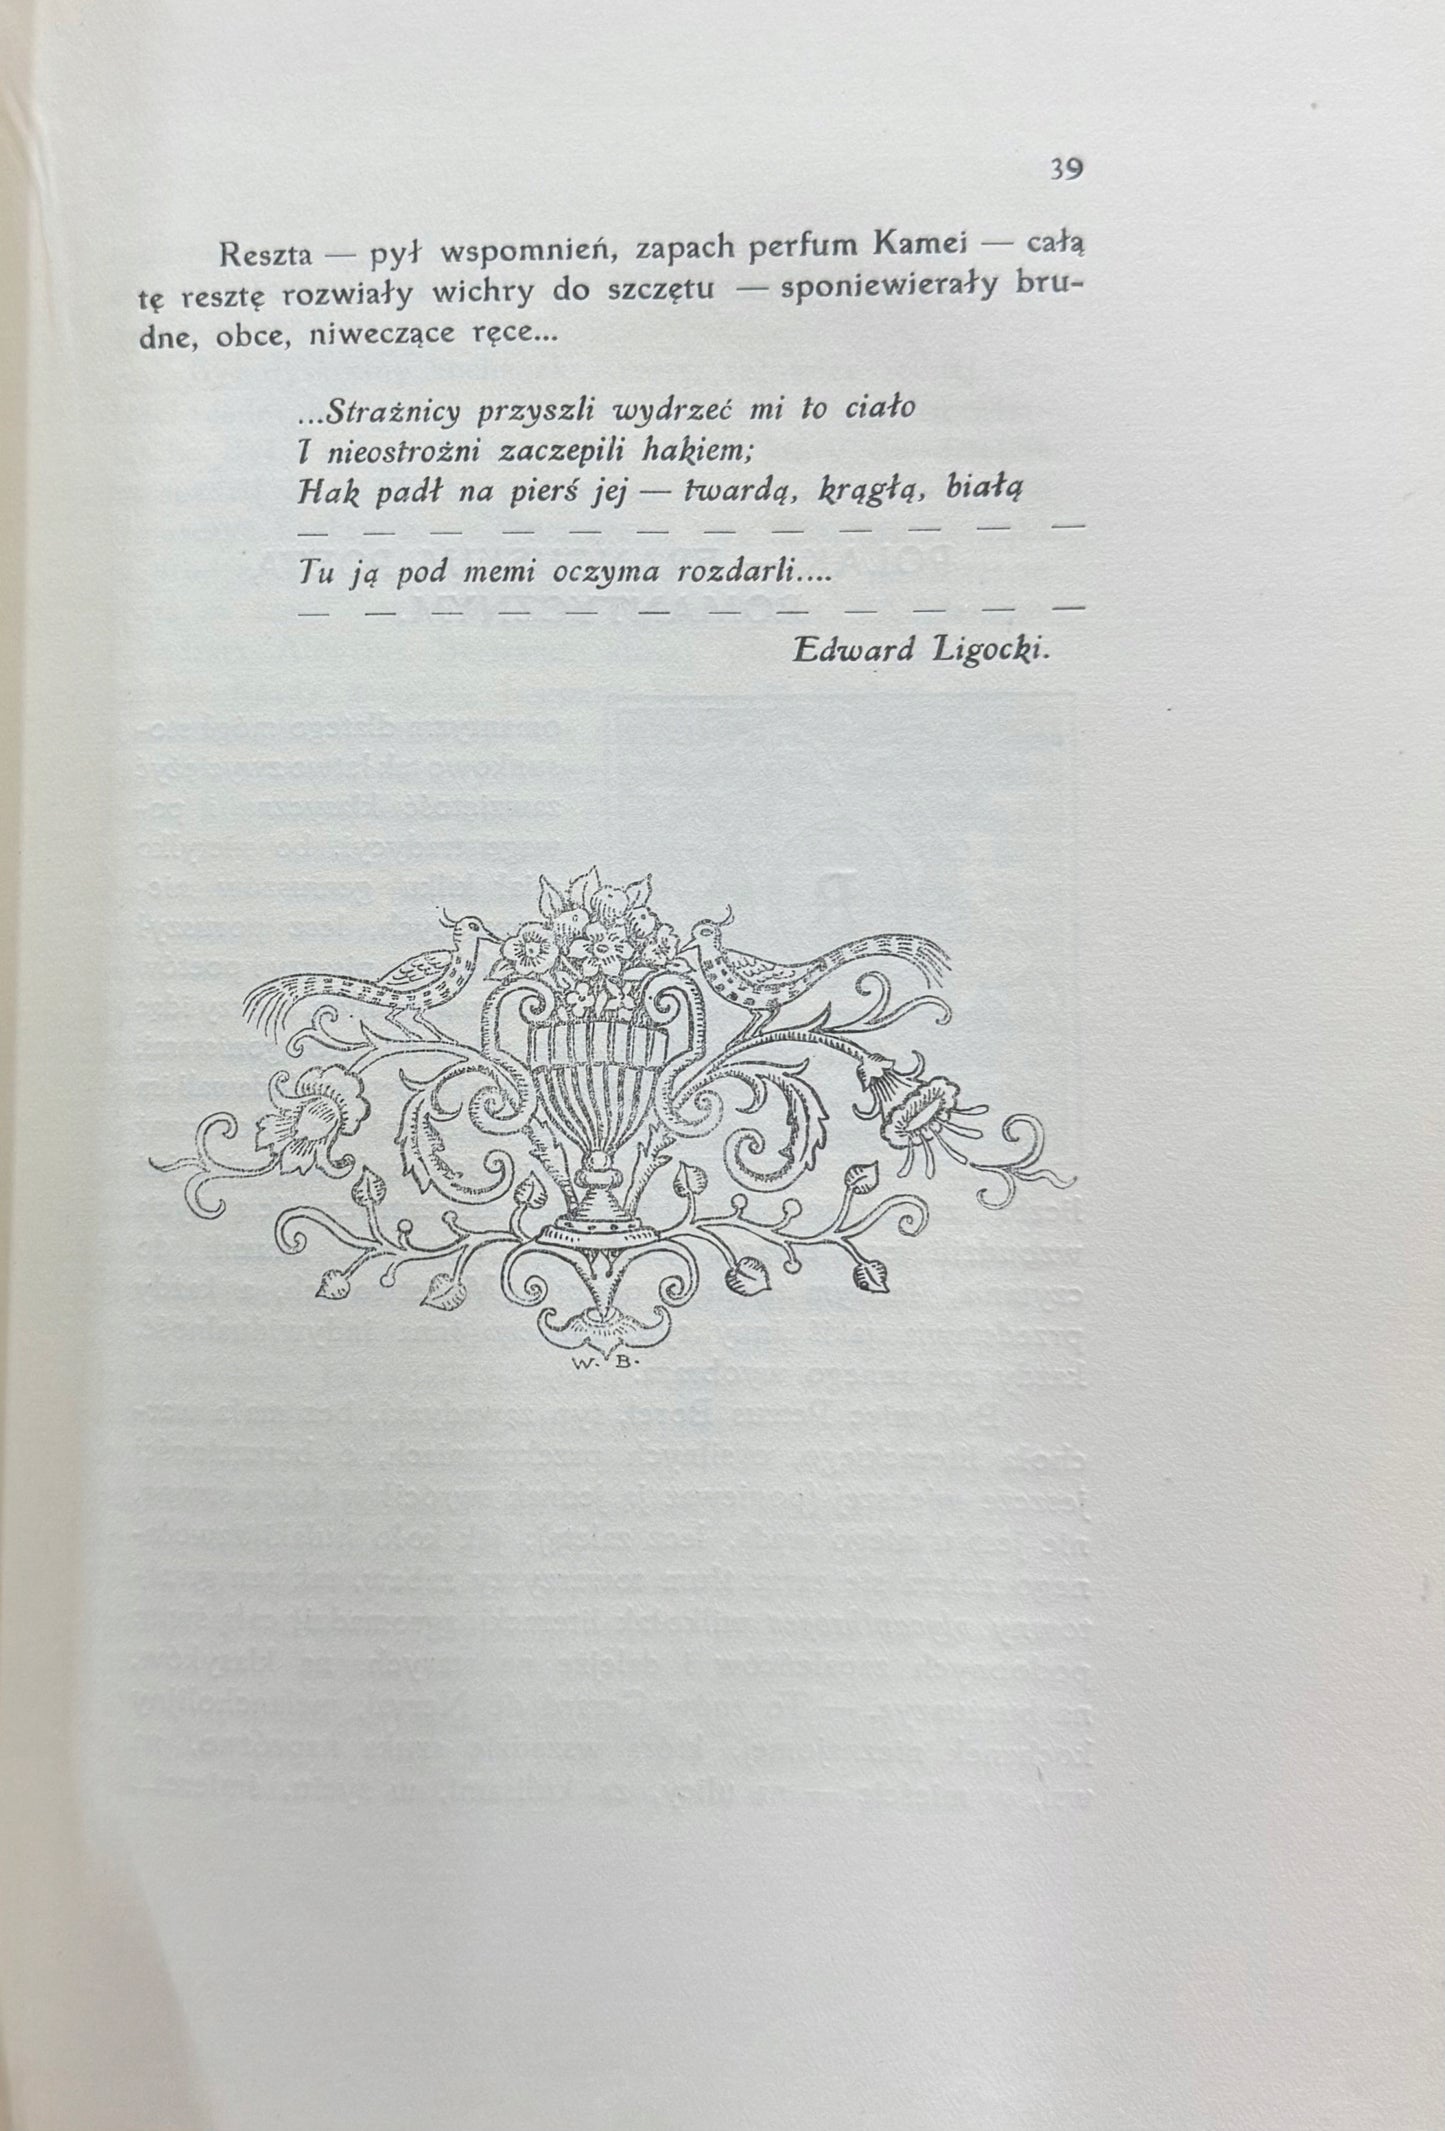 39
Reszta — pył wspomnień, zapach perfum Kamei — całą
tę resztę rozwiały wichry do szczętu — sponiewierały bru-
dne, obce, niweczące ręce...
...Strażnicy przyszli wydrzeć mi to ciało
I nieostrożni zaczepili hakiem;
Hak padł na pierś jej — twardą, krągłą, białą
— — — — — — — — — — — —
Tu ją pod memi oczyma rozdarli....
— — — — — — — — — — — —
Edward Ligocki.
W. B.